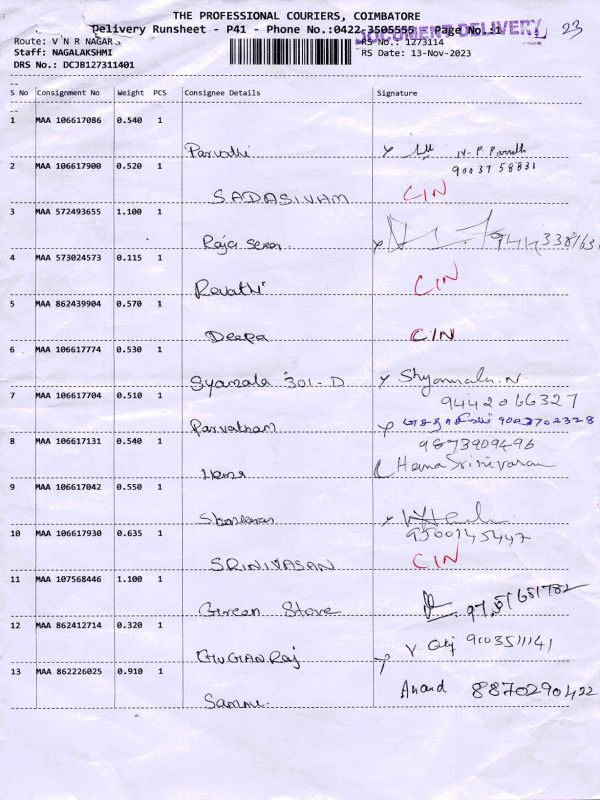 THE PROFESSIONAL COURIERS, COIMBATORE
Delivery Runsheet - P41 - Phone No.:0422-3505555 Page No.:1
DOCUMENT DELIVERY
23
Route: V N R NAGAR
RS No.: 1273114
Staff: NAGALAKSHMI
RS Date: 13-Nov-2023
DRS No.: DCJB127311401
S No Consignment No Weight PCS Consignee Details Signature
1 MAA 106617086 0.540 1
Parvathi N. P. Parvathi
2 MAA 106617900 0.520 1 90037 58831
SADASIVAM CIN
3 MAA 572493655 1.100 1
Raja
4 MAA 573024573 0.115 1
Revathi CIN
5 MAA 862439904 0.570 1
Deepa CIN
6 MAA 106617774 0.530 1
Syamala 301-D Shyamala. N.
7 MAA 106617704 0.510 1 9442066327
Parvatham 9003702328
8 MAA 106617131 0.540 1 9873909496
Hema Hema Srinivasan
9 MAA 106617042 0.550 1
10 MAA 106617930 0.635 1 9500145447
SRINIVASAN CIN
11 MAA 107568446 1.100 1
Green Stove
12 MAA 862412714 0.320 1
GUGANRaj 9003511141
13 MAA 862226025 0.910 1
Anand 8870290422